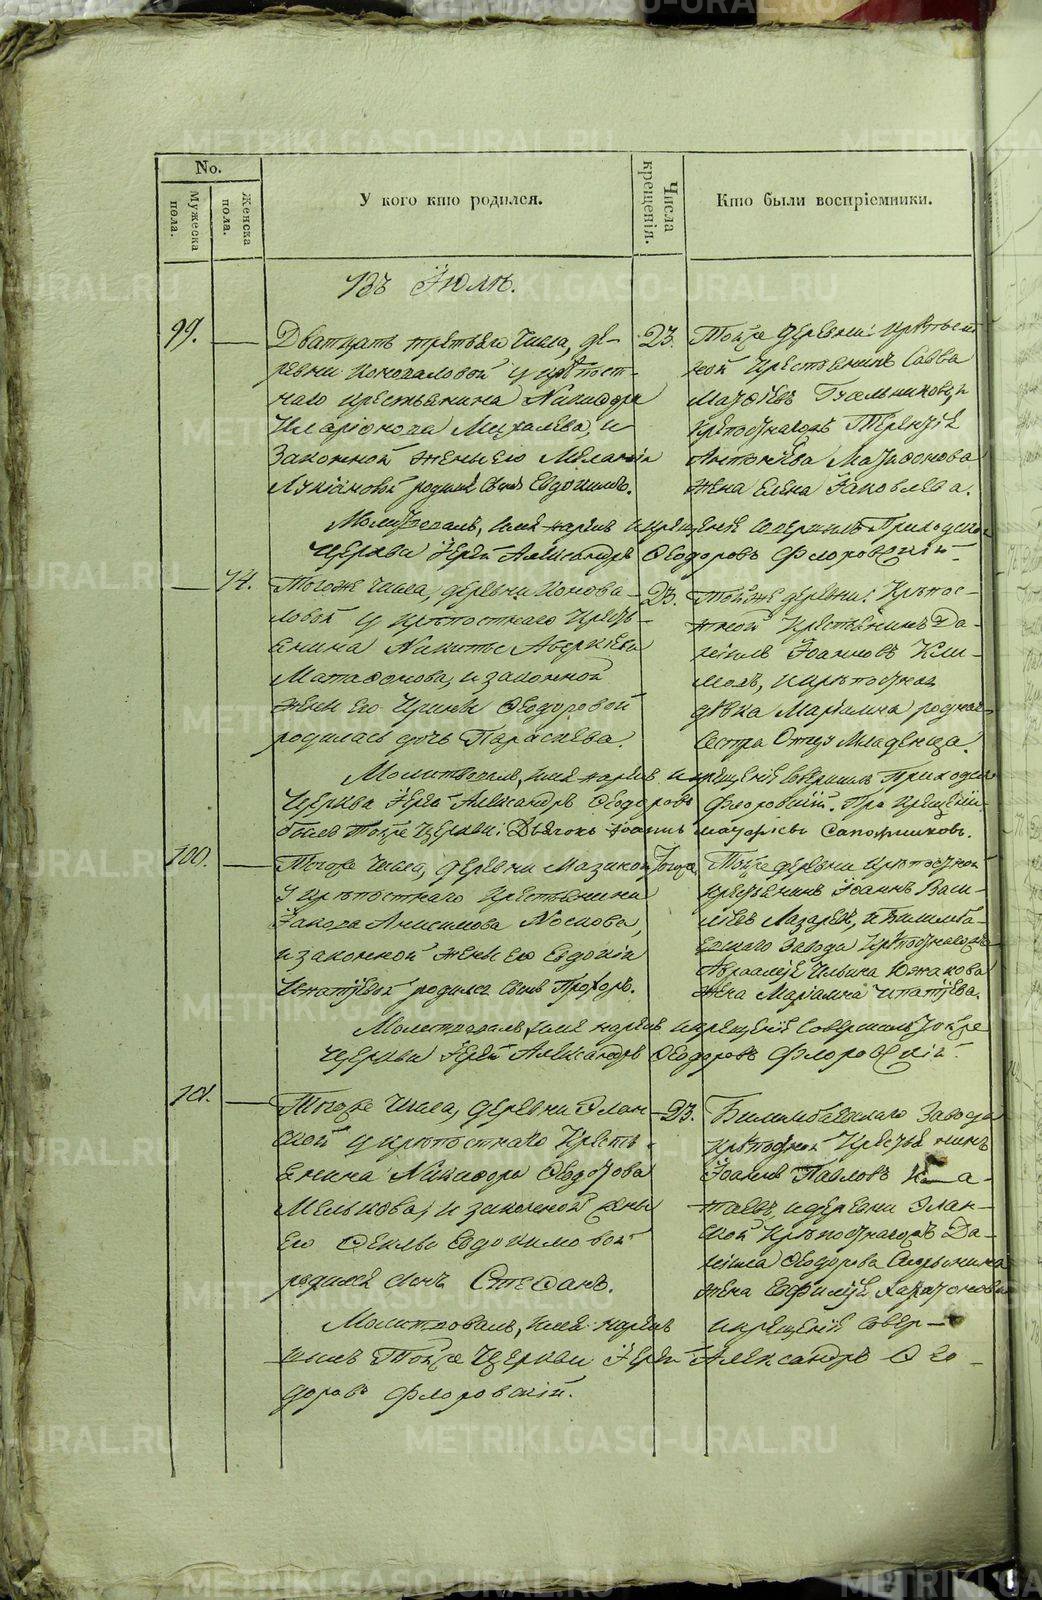 No.
Мужеска пола.
Женска пола.
У кого кто родился.
Числа крещенія.
Кто были воспріемники.
Въ Іюлѣ.
99.
Дватцать третьяго Числа, де-
ревни Коноваловой у крѣпост-
наго крестьянина Никифора
Иларіонова Михалева, и
Законной жены его Меланіи
Лукіановой родился сынъ Евдокимъ.
23.
Тойже деревни крѣпост-
ной крестьянинъ Савва
и
Крепостнаго Терентія
Антоніева Матафонова
жена Елена Іаковлева.
Молитвовалъ, имя нарекъ и крещеніе совершилъ Приходской
Церкви Іерей Александръ Ѳеодоровъ Флоровскій
74.
Тогоже числа, деревни Конова-
ловой у крѣпостнаго Кресть-
янина Никиты Аверкіева
Матафонова, и законной
жены его Ирины Ѳеодоровой
родилась дочь Параскева.
23.
Тойже деревни: Крѣпос-
тной Крестьянинъ Да-
ніилъ Іоанновъ Кли-
мовъ, и крѣпостная
дѣвка Маріамна родная
сестра Отцу Младенца.
Молитвовалъ, имя нарекъ и крещеніе совершилъ Приходской
Церкви Іерей Александръ Ѳеодоровъ Флоровскій. При крещеніи
былъ тойже Церкви: Дьячокъ Іоаннъ Макаріевъ Сапожниковъ.
100.
Тогоже Числа, деревни Мазиной
у крѣпостнаго Крестьянина
Іакова Анисимова Носкова,
и законной жены его Евдокіи
Игнатіевой родился сынъ Прохоръ.
Тогоже
Тойже деревни крѣпостной
крестьянинъ Іоаннъ Васи-
ліевъ Лазаревъ, и Билимба-
евскаго Завода Крѣпостнаго
Ильина Южакова
жена Маріамна Ипатіева.
Молитвовалъ, имя нарекъ и крещеніе совершилъ тойже
Церкви Іерей Александръ Ѳеодоровъ Флоровскій.
101.
Тогоже Числа, деревни Елан-
ской у крѣпостнаго Кресть-
янина Никифора Ѳедотова
Мелькова, и законной жены
его Ѳеклы Евдокимовой
родился сынъ Стефанъ.
23.
Билимбаевскаго Завода
крѣпостной Крестьянинъ
Іоаннъ Павловъ
и деревни Елан-
ской Крѣпостнаго Да-
ніила Ѳеодорова
жена Харитонова
Молитвовалъ, имя нарекъ и крещеніе совер-
шилъ Тойже Церкви Іерей Александръ Ѳео-
доровъ Флоровскій.
METRIKI.GASO-URAL.RU